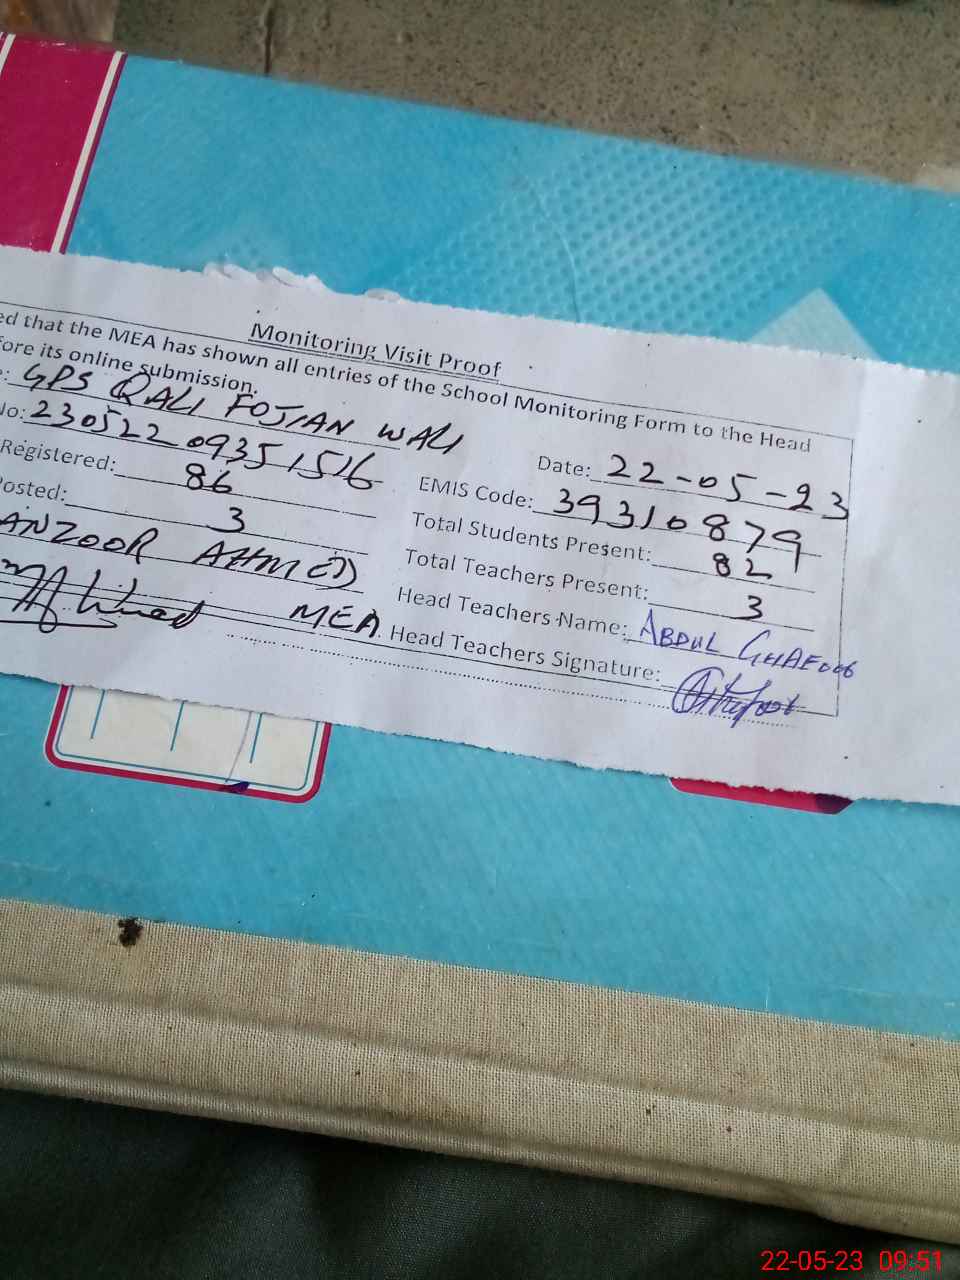 Monitoring Visit Proof
ed that the MEA has shown all entries of the School Monitoring Form to the Head
fore its online submission.
e: GPS QALI FOJIAN WALI
Date: 22-05-23
No: 230522093515​16
EMIS Code: 39310879
Registered: 86
Total Students Present: 82
Posted: 3
Total Teachers Present: 3
ANZOOR AHMED
Head Teachers Name: ABDUL GHAFOOR
MEA
Head Teachers Signature:
22-05-23 09:51